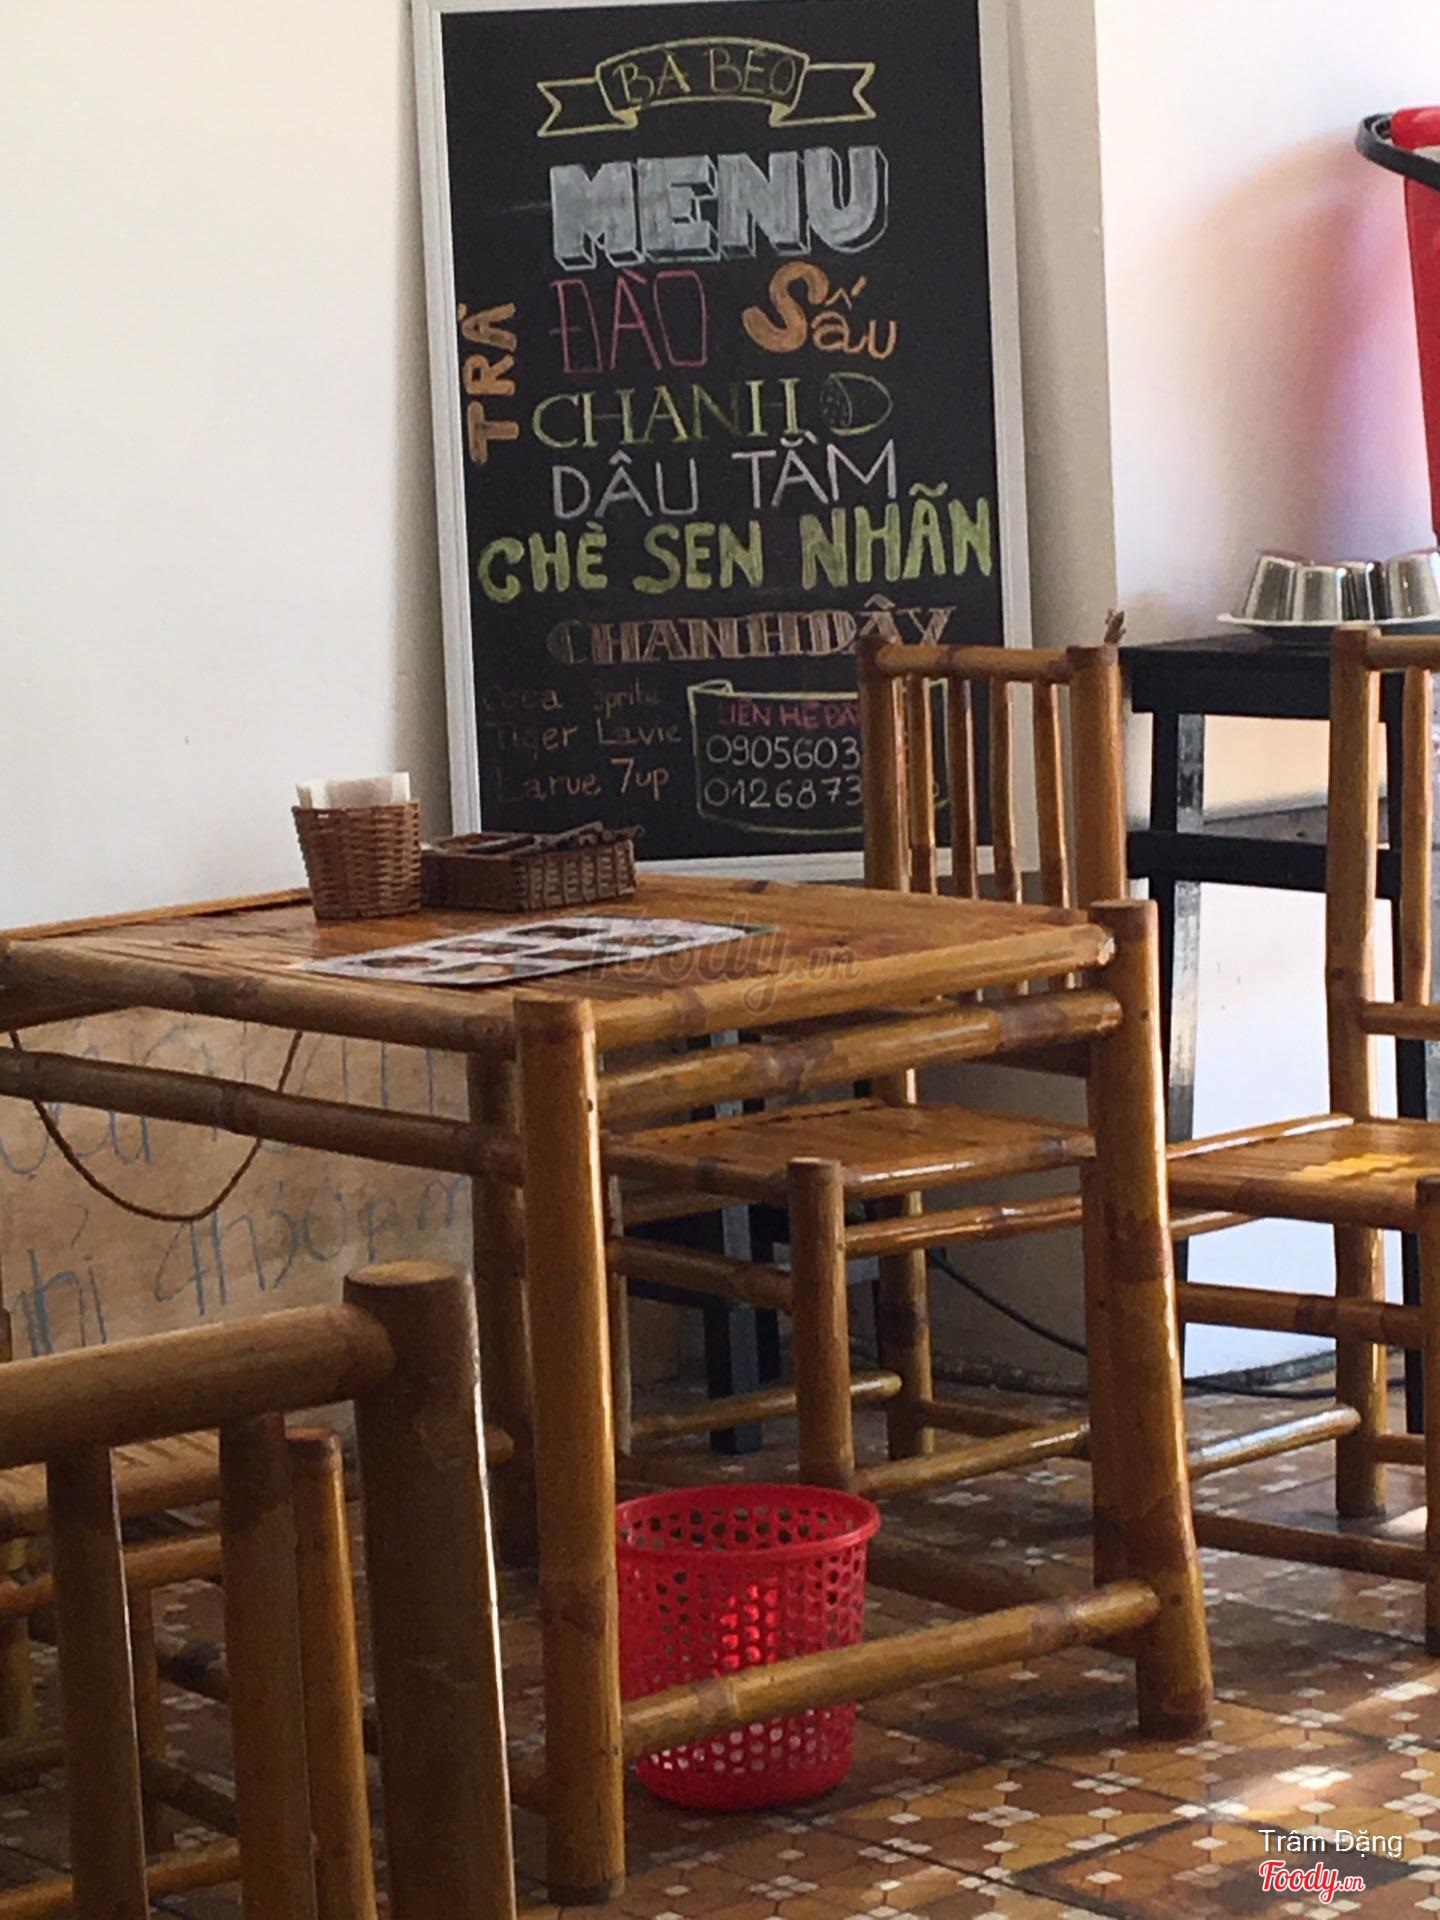 BÀ BÉO
MENU
TRÀ
ĐÀO Sấu
CHANH
DÂU TẰM
CHÈ SEN NHÃN
CHANH DÂY
Coca Sprite
Tiger Lavie
Larue 7up
LIÊN HỆ ĐẶ
0905603
0126873
Foody.vn
4h30
Trâm Đặng
Foody.vn